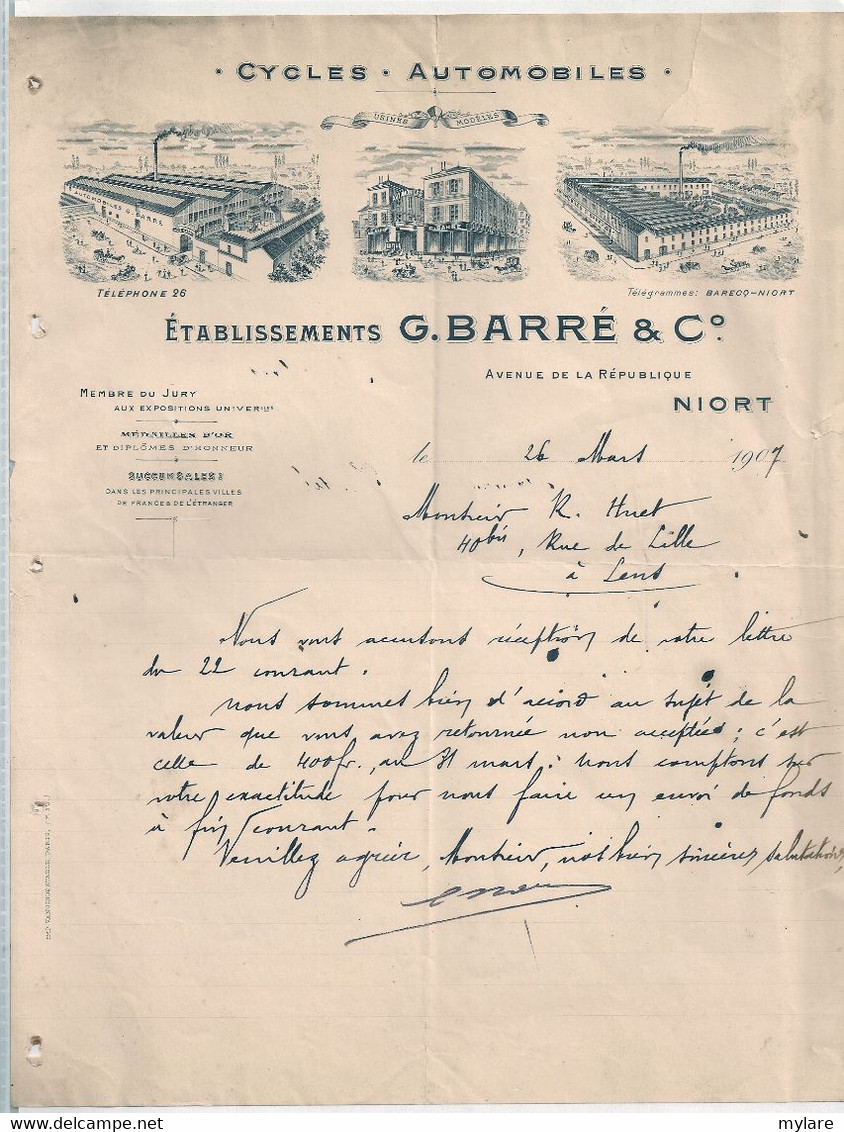 · CYCLES · AUTOMOBILES ·
USINES MODÈLES
AUTOMOBILES G. BARRÉ
TÉLÉPHONE 26
Télégrammes: BARECQ-NIORT
ÉTABLISSEMENTS G. BARRÉ & Cº.
AVENUE DE LA RÉPUBLIQUE
NIORT
MEMBRE DU JURY
AUX EXPOSITIONS UNIVERlles
MÉDAILLES D'OR
ET DIPLÔMES D'HONNEUR
SUCCURSALES
DANS LES PRINCIPALES VILLES
DE FRANCE & DE L'ÉTRANGER
le 26 Mars 1907
Monsieur R. Huet
40bis, Rue de Lille
à Lens
Nous vous accusons réception de votre lettre
du 22 courant.
Nous sommes bien d'accord au sujet de la
valeur que vous avez retournée non acceptée; c'est
celle de 400fr., au 31 mars: nous comptons sur
votre exactitude pour nous faire un envoi de fonds
à fin courant.
Veuillez agréer, Monsieur, nos bien sincères salutations,
mylare